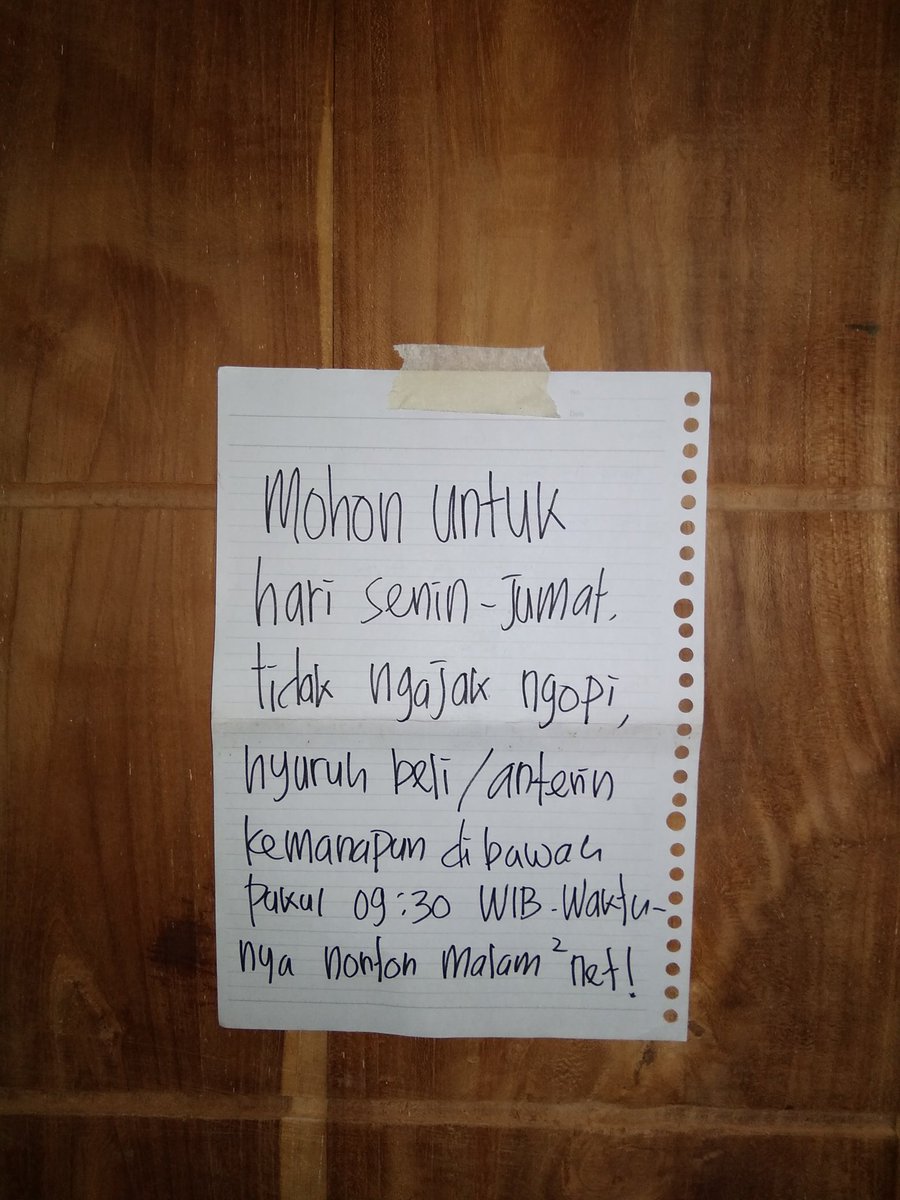 Mohon untuk
hari senin-Jumat.
tidak ngajak ngopi,
nyuruh beli/anterin
kemanapun dibawah
pukul 09:30 WIB. Waktu-
nya nonton Malam² net!